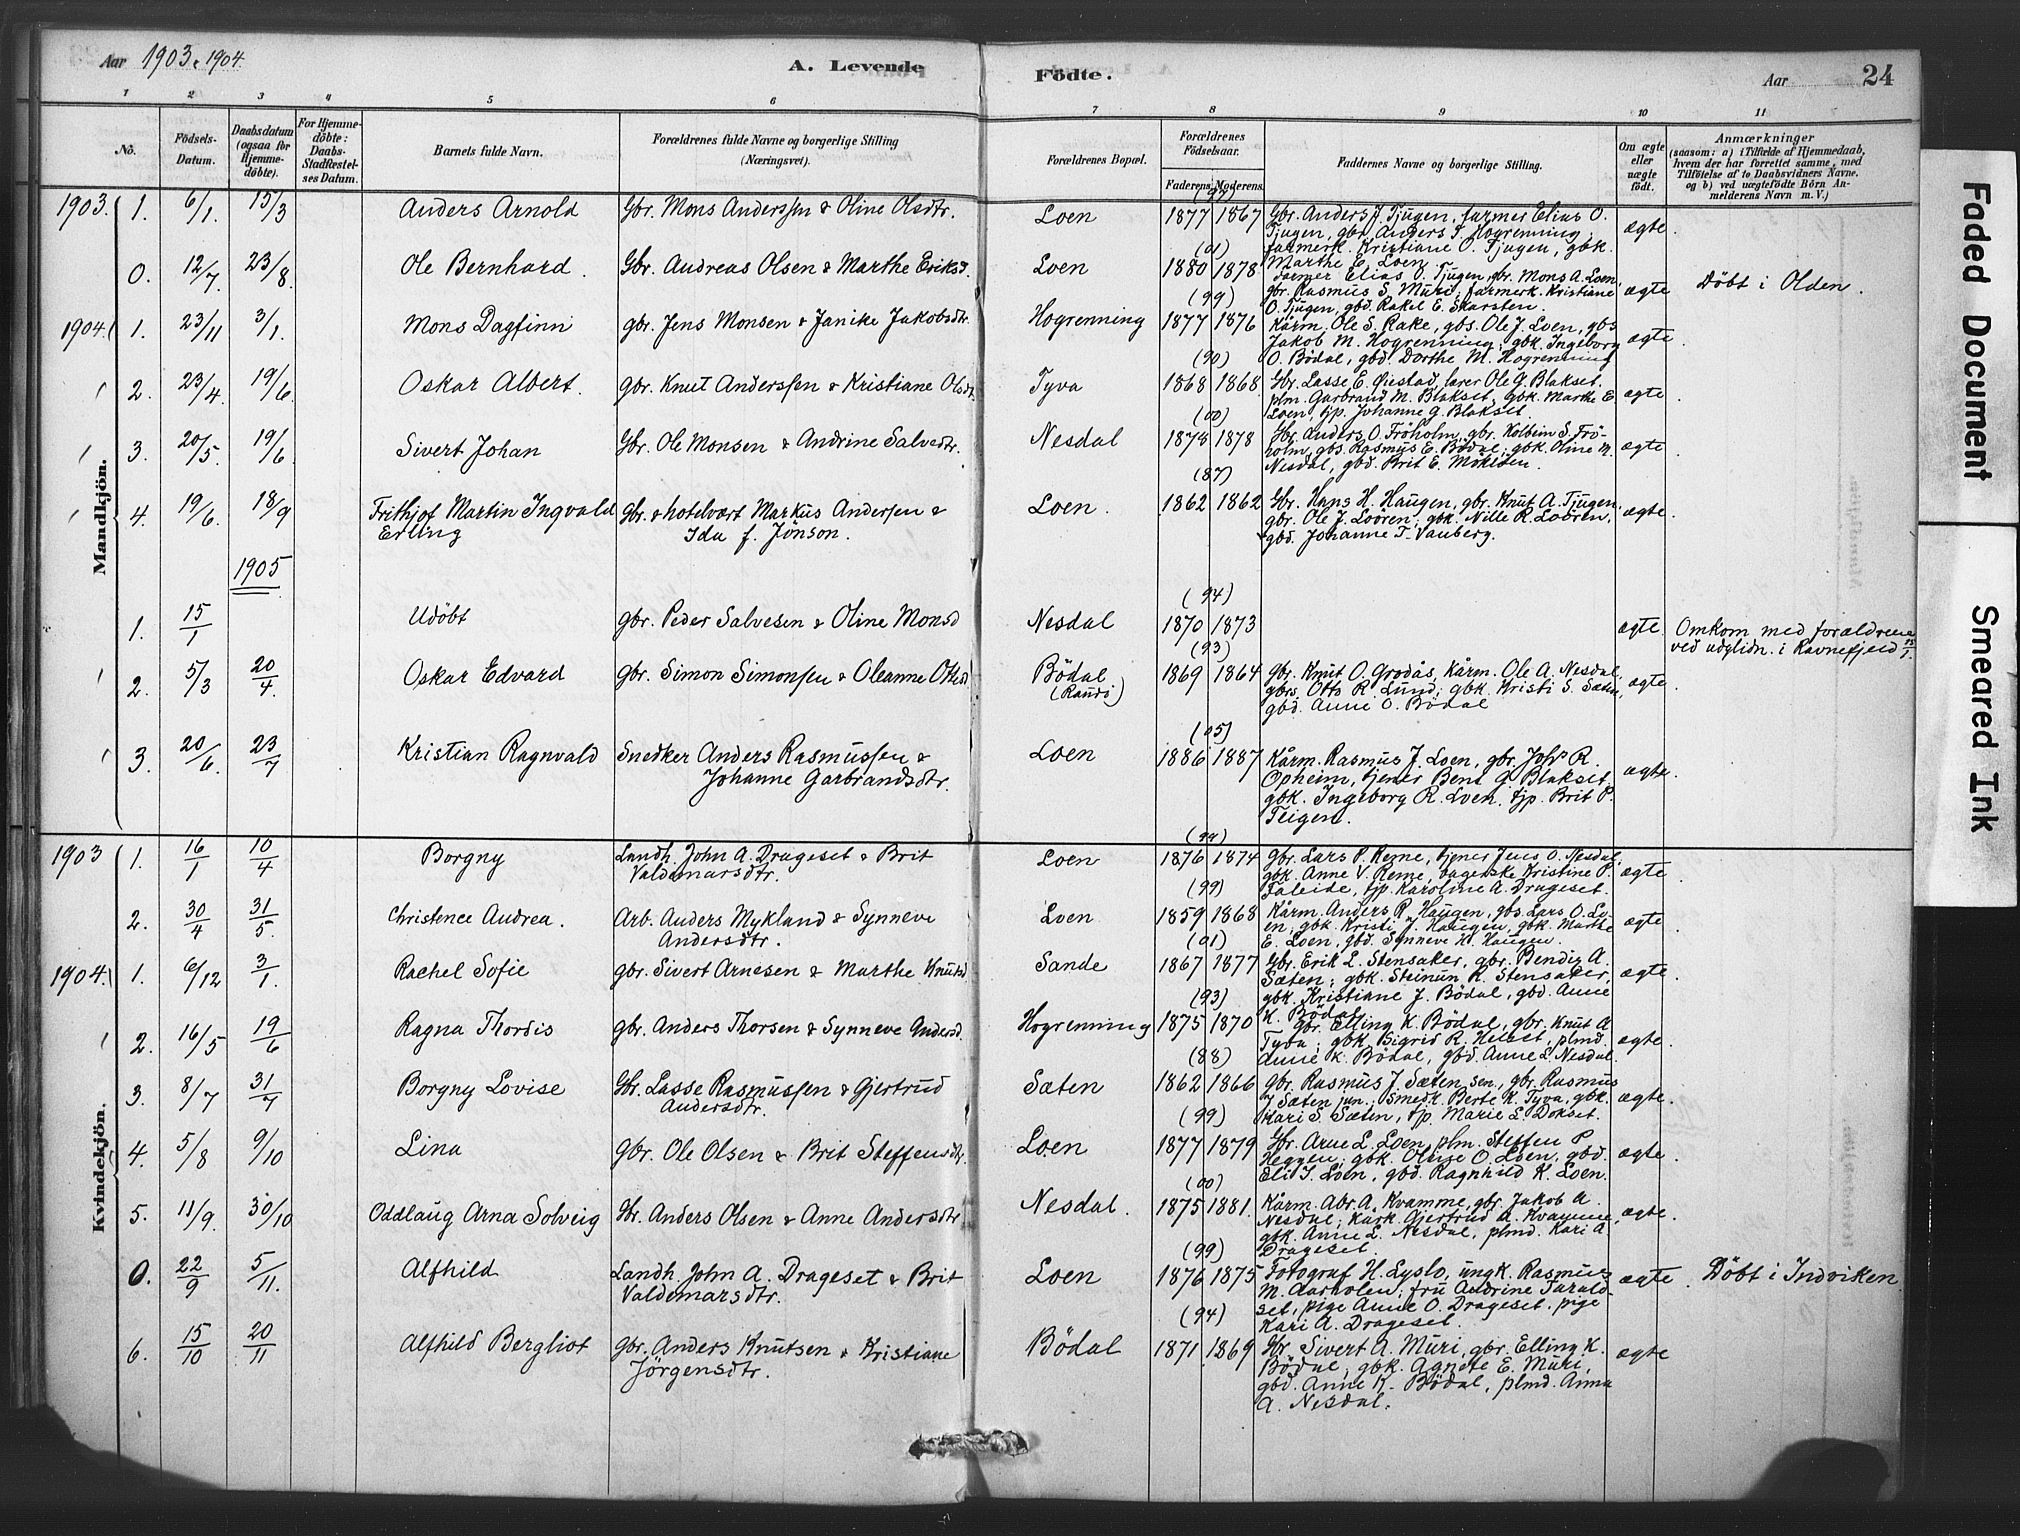 Aar 1903, 1904.
A. Levende
Födte.
Aar
24
1 2 3 4 5 6 7 8 9 10 11
No.
Födsels-Datum.
Daabsdatum (ogsaa for Hjemmedöbte).
For Hjemmedöbte: Daabs-Stadfæstelses Datum.
Barnets fulde Navn.
Forældrenes fulde Navne og borgerlige Stilling (Næringsvei).
Forældrenes Bopæl.
Forældrenes Födselsaar.
Faderens. Moderens.
Faddernes Navne og borgerlige Stilling.
Om ægte eller uægte födt.
Anmærkninger
(saasom: a) i Tilfælde af Hjemmedaab, hvem der har forrettet samme, med Tilföielse af to Daabsvidners Navne. og b) ved uægtefödte Börn Anmelderens Navn m. V.)
Mandkjön.
1903. 1. 6/1. 15/3 Anders Arnold Gbr. Mons Anderssen & Oline Olsdtr. Loen (97) 1877 1867 Gbr. Anders J. Tjugen, farmer Elias O.
Tjugen, gbr. Anders T. Hogrenning; ægte.
farmerk. Kristiane O. Tjugen, gbk.
Marthe E. Loen.
0. 12/7. 23/8. Ole Bernhard. Gbr. Andreas Olsen & Marthe Eriksd. Loen (01) 1880 1878 Farmer Elias O. Tjugen, gbr. Mons A. Loen,
gbr. Rasmus S. Muri; farmerk. Kristiane ægte Döbt i Olden.
O. Tjugen, gbd. Rakel E. Skarsten.
1904 1. 23/11 3/1. Mons Dagfinn gbr. Jens Monsen & Janike Jakobsdtr. Hogrenning (99) 1877 1876 Kårm. Ole S. Rake, gbs. Ole J. Loen, gbs
Jakob M. Hogrenning; gbk. Ingeborg ægte.
O. Bödal, gbd. Dorthe M. Hogrenning
2. 23/4. 19/6. Oskar Albert. gbr. Knut Anderssen & Kristiane Olsdt. Tyva (90) 1868 1868 Gbr. Lasse E. Øiestad, lærer Ole G. Blakset.
plm. Garbrand M. Blakset; gbk. Marthe E. ægte.
Loen, tjp. Johanne G. Blakset.
3. 20/5. 19/6 Sivert Johan Gbr. Ole Monsen & Andrine Salvedtr. Nesdal (00) 1878 1878 Gbr. Anders O. Fröholm, gbr. Kolbein S. Frö-
holm, gbs. Rasmus E. Bödal; gbk. Oline M. ægte
Nesdal, gbd. Brit E. Möklebn.
4. 19/6. 18/9 Frithjof Martin Ingvald gbr. & hotelvært Markus Andersen & Loen. (87) 1862 1862 Gbr. Hans H. Haugen, gbr. Knut A. Tjugen.
Erling Ida f. Jönson. gbr. Ole J. Loören; gbk. Nille R. Loören, ægte.
gbd. Johanne T. Vauberg.
1905
1. 15/1 Udöbt gbr. Peder Salvesen & Oline Monsd Nesdal (94) 1870 1873 ægte. Omkom med forældrene
ved udglidn. i Ravnefjeld 15/1.
2. 5/3 20/4. Oskar Edvard gbr. Simon Simonsen & Oleanne Ottesd Bödal (93) 1869 1864 gbr. Knut O. Grodås, Kårm. Ole A. Nesdal,
gbrs. Otto R. Lund; gbk. Kristi S. Sæten, ægte.
gbd. Anne O. Bödal
3. 20/6. 23/7 Kristian Ragnvald Snedker Anders Rasmussen & Loen (05) 1886 1887 Kårm. Rasmus J. Loen, gbr. Johs R.
Johanne Garbrandsdtr. Opheim, tjener Bent G. Blakset, ægte.
gbk. Ingeborg R. Loen, tjp. Brit P.
Teigen.
Kvindekjön.
1903 1. 16/1 10/4 Borgny Landh. John A. Drageset & Brit Loen (99) 1876 1874 gbr. Lars P. Reme, tjener Jens O. Nesdal;
Valdemarsdtr. gbk. Anne V. Reme, bagerske Kristine P. ægte
Faleide, tjp. Karoline A. Drageset.
2. 30/4 31/5. Christence Andrea. Arb. Anders Mykland & Synneve Loen (99) 1859 1868 Kårm. Anders R. Haugen, gbs. Lars O. Lo-
Andersdtr. en; gbk. Kristi J. Haugen, gbk. Marthe ægte
E. Loen, gbd. Synneve H. Haugen.
1904. 1. 6/12 3/1. Rachel Sofie gbr. Sivert Arnesen & Marthe Knutsd Sande (01) 1867 1877 Gbr. Erik L. Stensaker, gbr. Bendix A.
Sæten; gbk. Steinun K. Stensaker, ægte.
gbk. Kristiane J. Bödal, gbd. Anne
K. Bödal.
2. 16/5 19/6 Ragna Thordis gbr. Anders Thorsen & Synneve Andersd. Hogrenning (93) 1875 1870 gbr. Elling K. Bödal, gbr. Knut A
Tyva; gbk. Sigrid R. Helset, plmd. ægte.
Anne K. Bödal, gbd. Anne L. Nesdal.
3. 8/7 31/7 Borgny Lovise Gbr. Lasse Rasmussen & Gjertrud Sæten (88) 1862 1866 gbr. Rasmus J. Sæten sen., gbr. Rasmus
Andersdtr. J. Sæten jun.; smedk. Berte K. Tyva, gbk. ægte.
Kari S. Sæten, tjp. Marie L. Dokset.
4. 5/8 9/10 Lina gbr. Ole Olsen & Brit Steffensdtr. Loen (99) 1877 1879 Gbr. Arne L. Loen, plm. Steffen P.
Heggen; gbk. Oluse O. Loen, gbd. ægte.
Eli T. Loen, gbd. Ragnhild K. Loen.
5. 11/9. 30/10 Oddlaug Arna Solveig Gbr. Anders Olsen & Anne Andersdtr Nesdal. (00) 1875 1881 Kårm. Abr. A. Kvamme, gbr. Jakob A.
Nesdal; kark. Gjertrud A. Kvamme, ægte.
gbk. Anne L. Nesdal, plmd. Kari A.
Drageset.
0. 22/9 5/11. Alfhild Landh. John A. Drageset & Brit Loen (99) 1876 1875 Fotograf H. Lyslo, ungk. Rasmus ægte. Döbt i Indviken
Valdemarsdtr. M. Aarholen; fru Andrine Tarald-
set, pige Anne O. Drageset, pige
Kari A. Drageset.
6. 15/10 20/11 Alfhild Bergliot gbr. Anders Knutsen & Kristiane Bödal (94) 1871 1869 Gbr. Sivert A. Muri, gbr. Elling K.
Jörgensdtr. Bödal; gbk. Agnete E. Muri, ægte
gbd. Anne K. Bödal, plmd. Anna
A. Nesdal.
Faded Document
Smeared Ink